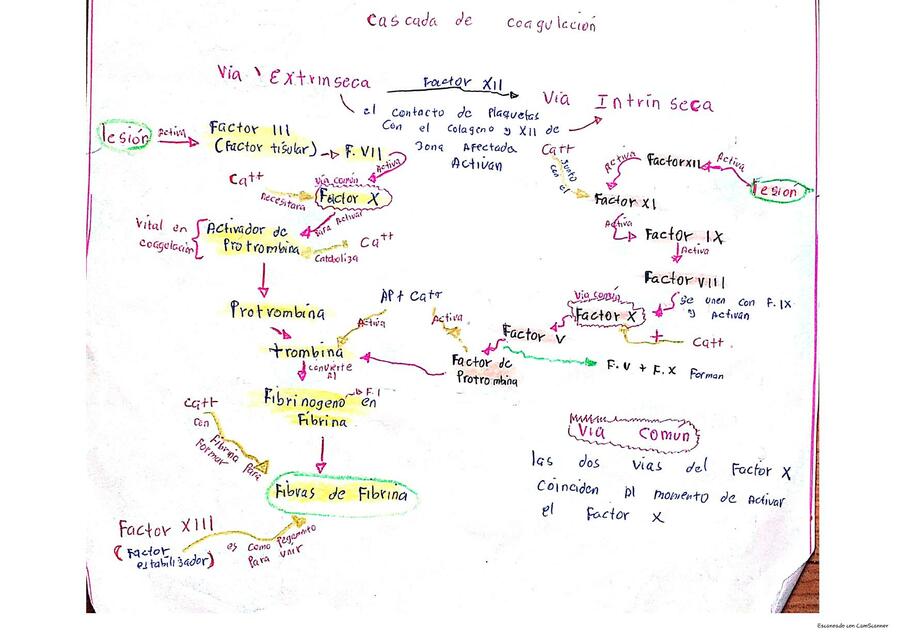 Cascada de coagulación
Vía Extrinseca
Factor XII
Vía Intrinseca
el contacto de Plaquetas
Con el colageno y XII de
Zona Afectada
Activan
lesión
Activa
Factor III
(Factor tisular)
F. VII
Activa
Ca++
necesitara
vía común
Factor X
para Activar
Vital en
coagulación
Activador de
Protrombina
Ca++
Cataboliza
Protrombina
AP + Ca++
Activa
Activa
trombina
convierte
al
Fibrinogeno
F. I
en
Fibrina
Ca++
con
Fibrina para
Formar
Fibras de Fibrina
Factor XIII
(Factor
estabilizador)
es como pegamento
Para unir
Ca++
Junto
con el
Activa
Factor XII
Activa
lesión
Factor XI
Activa
Factor IX
Activa
Factor VIII
Se unen con F. IX
y Activan
Vía común
Factor X
+
Ca++
Factor V
Factor de
Protrombina
F. V + F. X Forman
Vía Comun
las dos vias del Factor X
Coinciden al momento de Activar
el Factor X
Escaneado con CamScanner